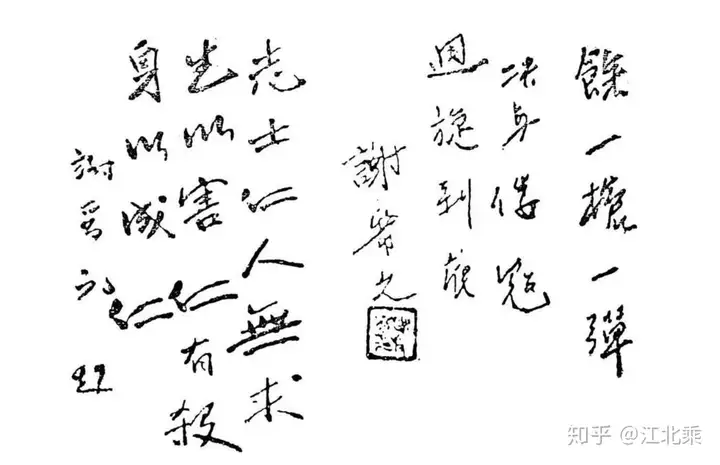 餘一槍一彈
決与倭寇
週旋到底
謝晉元
志士仁人無求
生以害仁有殺
身以成仁
謝晉元
知乎 @江北乘